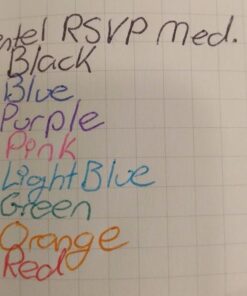 entel RSVP Med.
Black
Blue
Purple
Pink
Light Blue
Green
Orange
Red